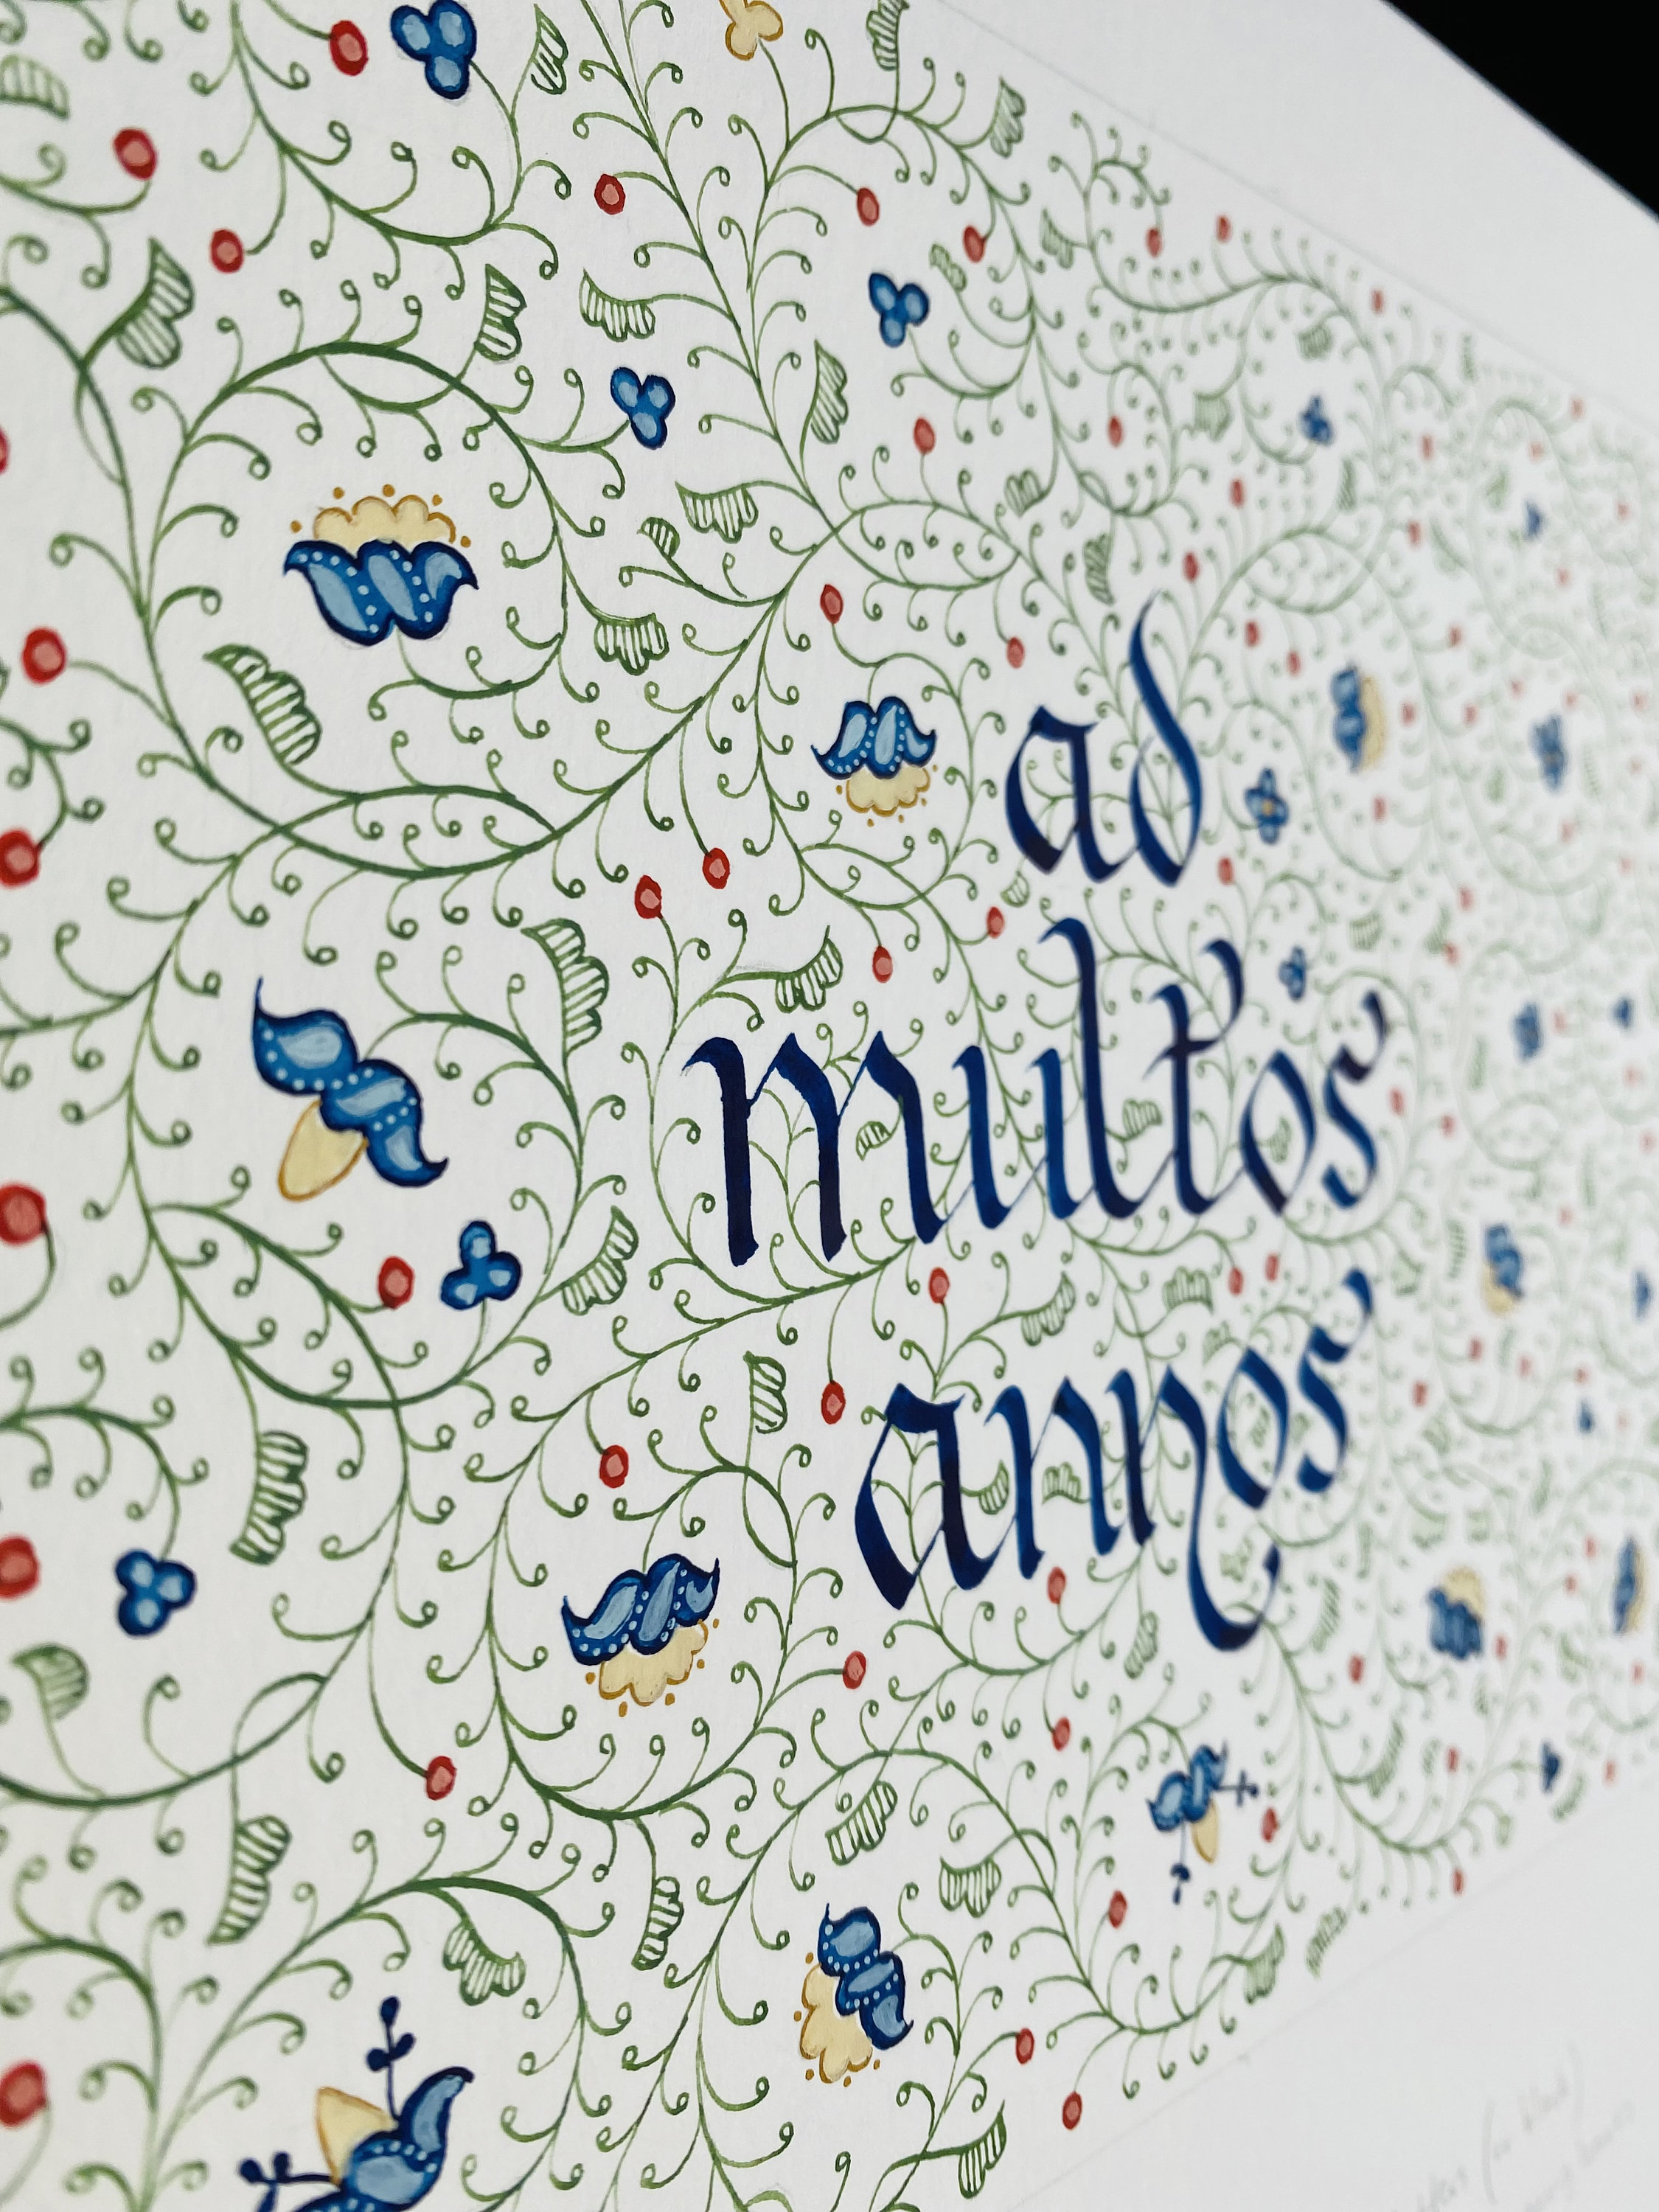 ad
multos
annos